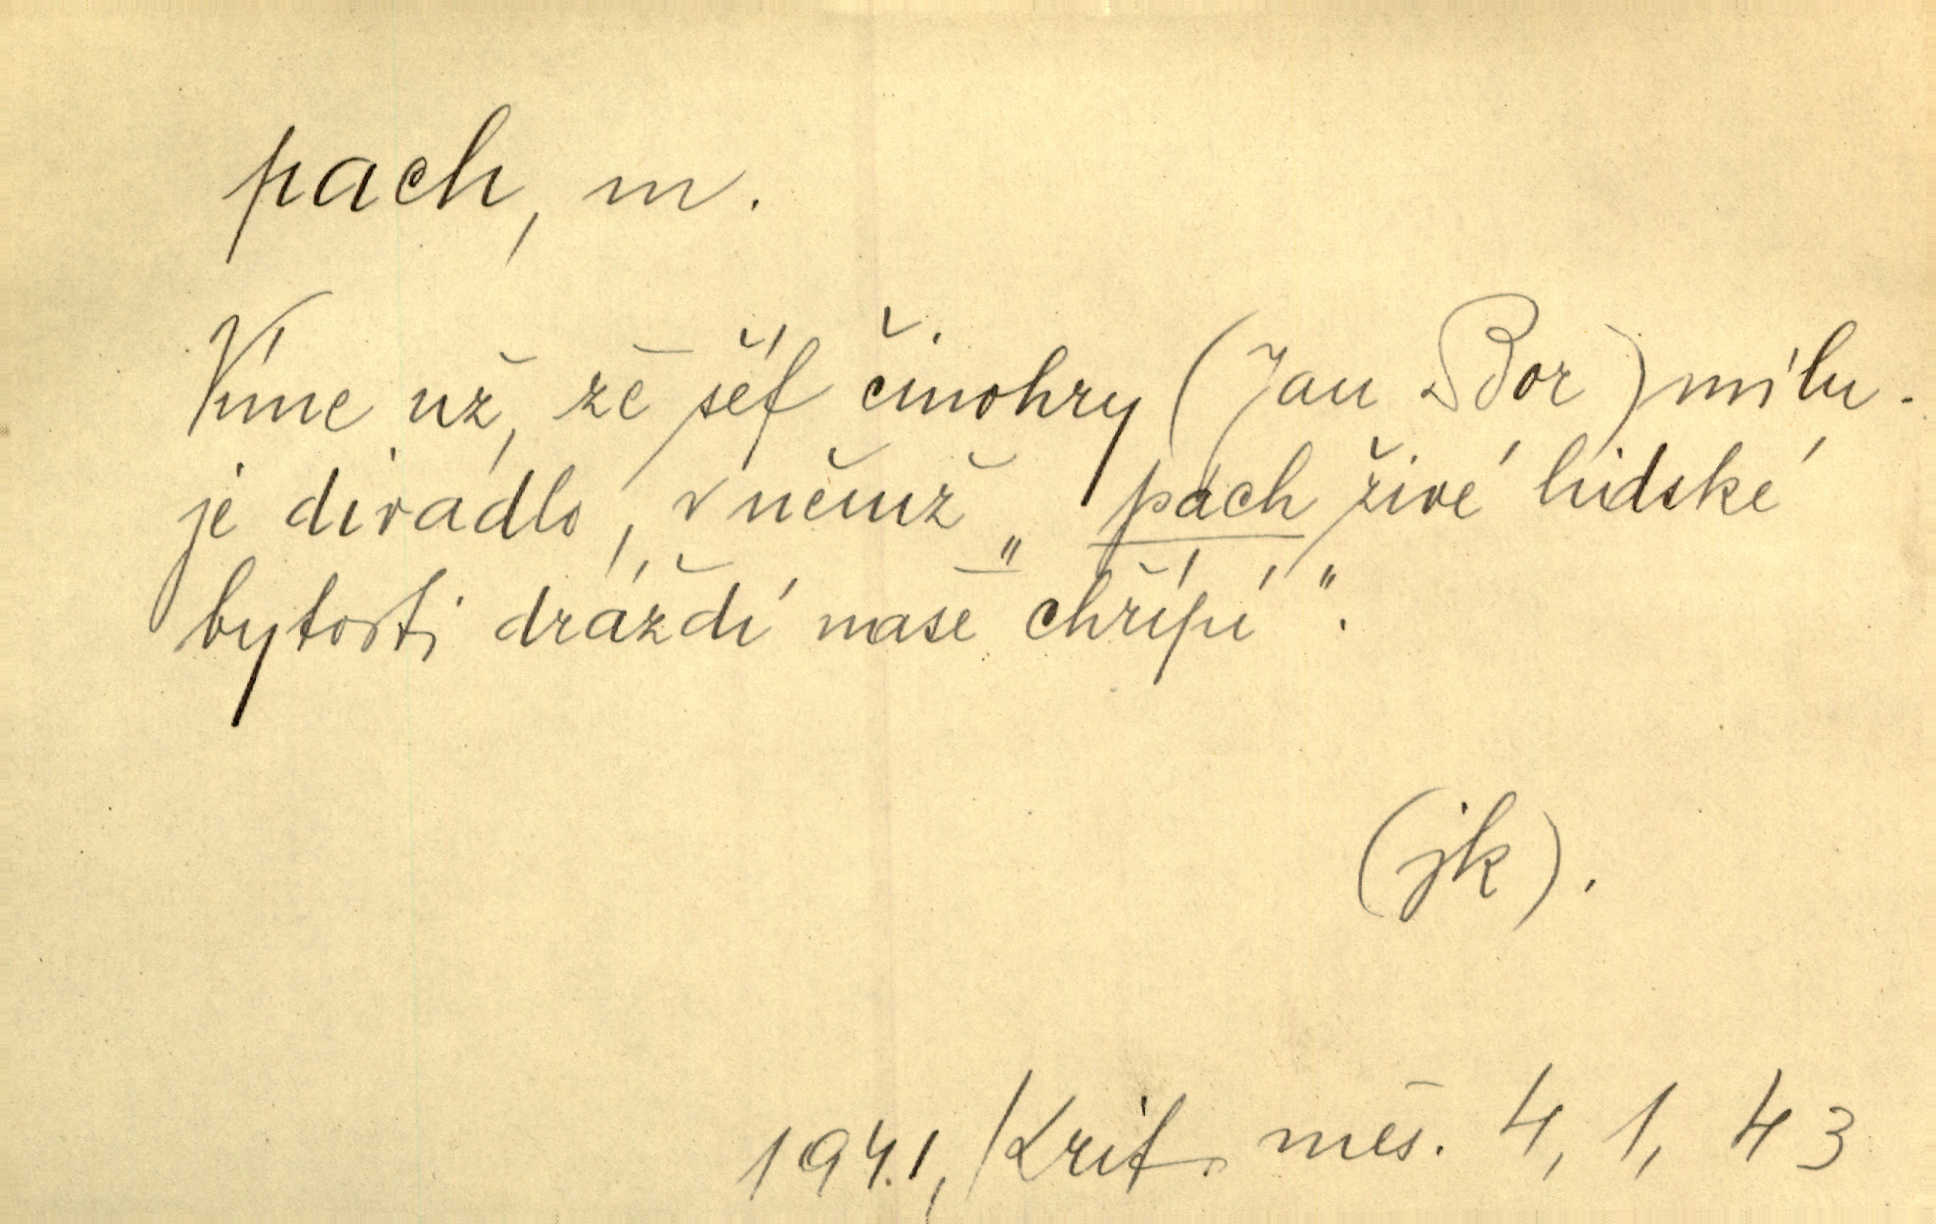 pach, m.
Víme už, že šéf činohry (Jan Bor) milu-
je divadlo, v němž „pach živé lidské
bytosti dráždí naše chřípí“.
(jk).
1941, Krit. měs. 4, 1, 43